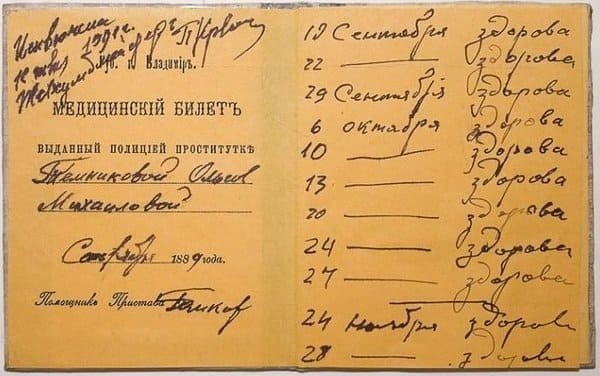 Исключена
Губ. г. Владиміръ.
МЕДИЦИНСКІЙ БИЛЕТЪ
ВЫДАННЫЙ ПОЛИЦІЕЙ ПРОСТИТУТКѢ
Темниковой
Михаиловой
Сентября 1889 года.
Помощникъ Пристава
19 Сентября здорова
22 — здорова
29 Сентября здорова
6 октября здорова
10 — здорова
13 — здорова
20 — здорова
24 — здорова
27 — здорова
24 Ноября здорова
28 — здорова